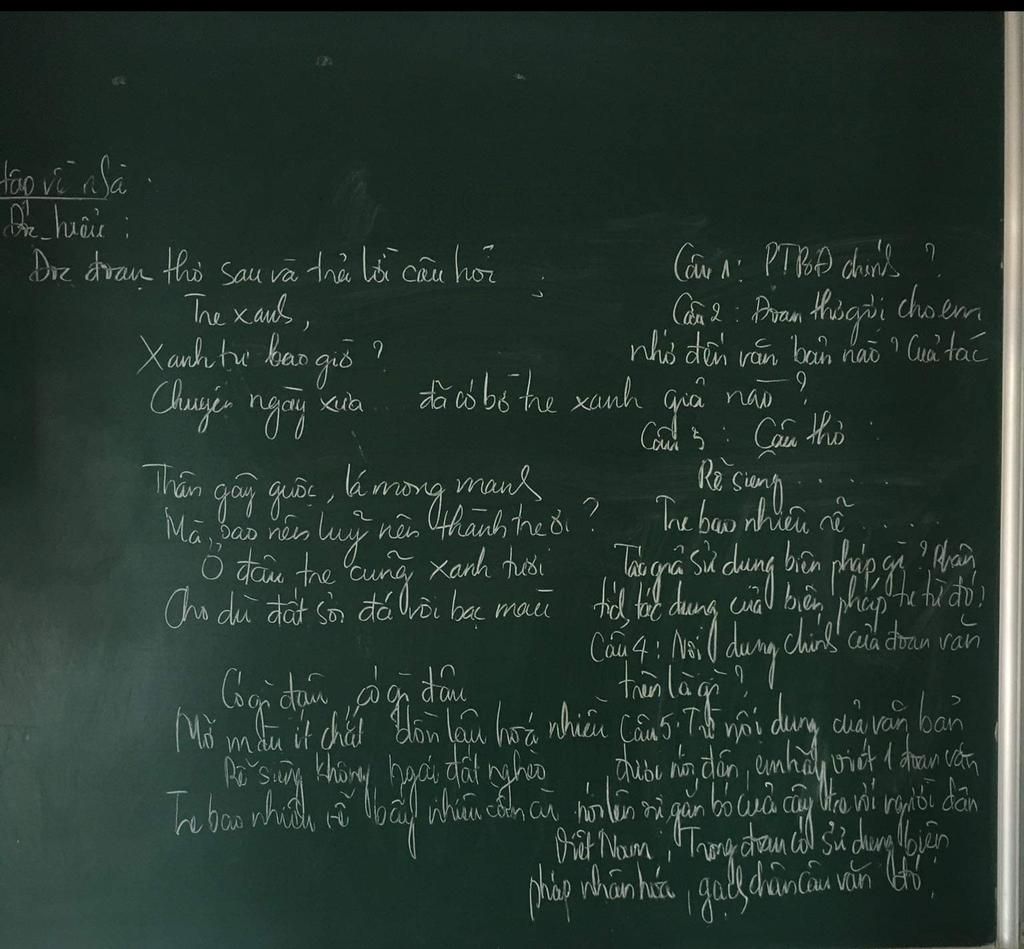 tập về nhà
Đọc hiểu :
Đọc đoạn thơ sau và trả lời câu hỏi :
Tre xanh,
Xanh tự bao giờ ?
Chuyện ngày xưa ... đã có bờ tre xanh
Thân gầy guộc, lá mong manh
Mà sao nên luỹ nên thành tre ơi ?
Ở đâu tre cũng xanh tươi
Cho dù đất sỏi đá vôi bạc màu
Có gì đâu, có gì đâu
Mỡ màu ít chất dồn lâu hoá nhiều
Rễ siêng không ngại đất nghèo
Tre bao nhiêu rễ bấy nhiêu cần cù
Câu 1 : PTBĐ chính ?
Câu 2 : Đoạn thơ gợi cho em
nhớ đến văn bản nào ? Của tác
giả nào ?
Câu 3 : Câu thơ :
Rễ siêng ......
Tre bao nhiêu rễ ......
Tác giả sử dụng biện pháp gì ? Phân
tích tác dụng của biện pháp tu từ đó !
Câu 4 : Nội dung chính của đoạn văn
trên là gì ?
Câu 5 : Từ nội dung của văn bản
được nói đến, em hãy viết 1 đoạn văn
nói lên sự gắn bó của cây tre với người dân
Việt Nam ; Trong đoạn có sử dụng biện
pháp nhân hóa, gạch chân câu văn đó.